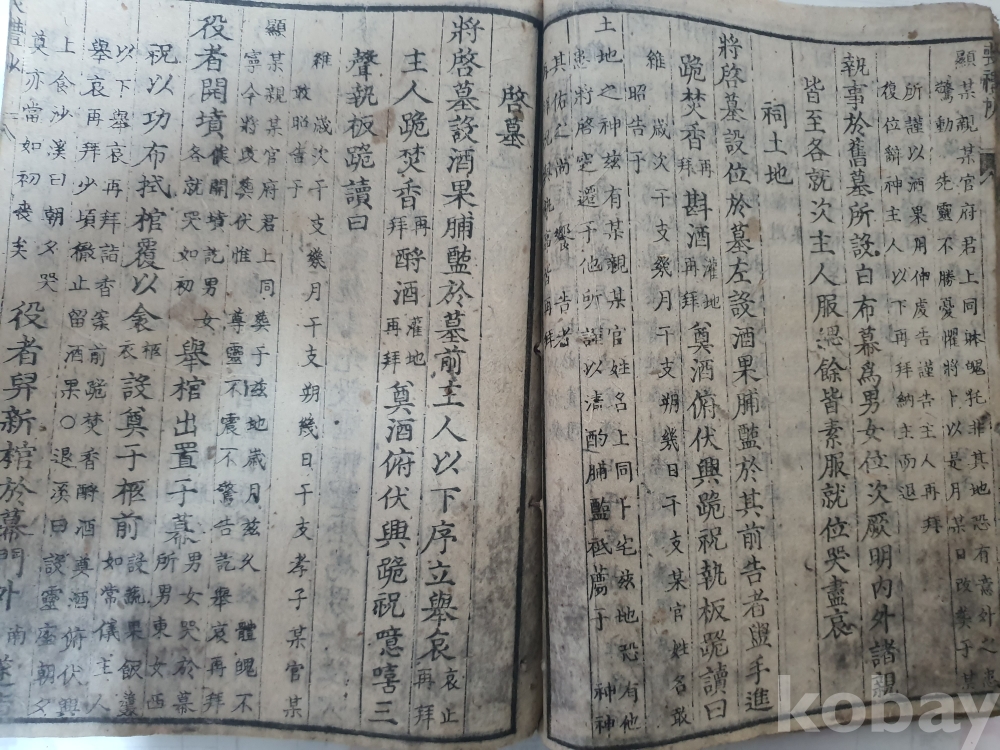 顯某親某官府君上同體魄托非其地恐有意外之患
驚動先靈不勝憂懼將卜以是月某日改葬于某
所謹以酒果用伸虔告謹告主人再拜
復位辭神主人以下再拜納主而退
執事於舊墓所設白布幕爲男女位次厥明內外諸親
皆至各就次主人服緦餘皆素服就位哭盡哀
祠土地
將啓墓設位於墓左設酒果脯醢於其前告者盥手進
跪焚香再拜斟酒灌地再拜奠酒俯伏興跪祝執板跪讀曰
維歲次干支幾月干支朔幾日干支某官姓名敢
昭告于
土地之神玆有某親某官姓名上同卜宅玆地恐有他
患將啓窆遷于他所謹以淸酌脯醢祗薦于神神
其佑之尙饗告者
啓墓
將啓墓設酒果脯醢於墓前主人以下序立擧哀哀止再拜
主人跪焚香再拜酹酒灌地再拜奠酒俯伏興跪祝噫嘻三
聲執板跪讀曰
維歲次干支幾月干支朔幾日干支孝子某官某
敢昭告于
顯某親某官府君上同葬于玆地歲月玆久體魄不
寧今將改葬伏惟尊靈不震不驚告訖擧哀再拜
役者開墳俟開墳訖男女各就哭如初擧棺出置于幕所男東女西男女哭於幕
祝以功布拭棺覆以衾衣柩設奠于柩前設蔬果飯羹如常儀主人
以下擧哀再拜詣香案前跪焚香酹酒奠酒俯伏興
擧哀再拜少頃徹止留酒果○退溪曰設靈座朝夕
上食沙溪曰朝夕哭
奠亦當如初喪矣役者舁新棺於幕門外南